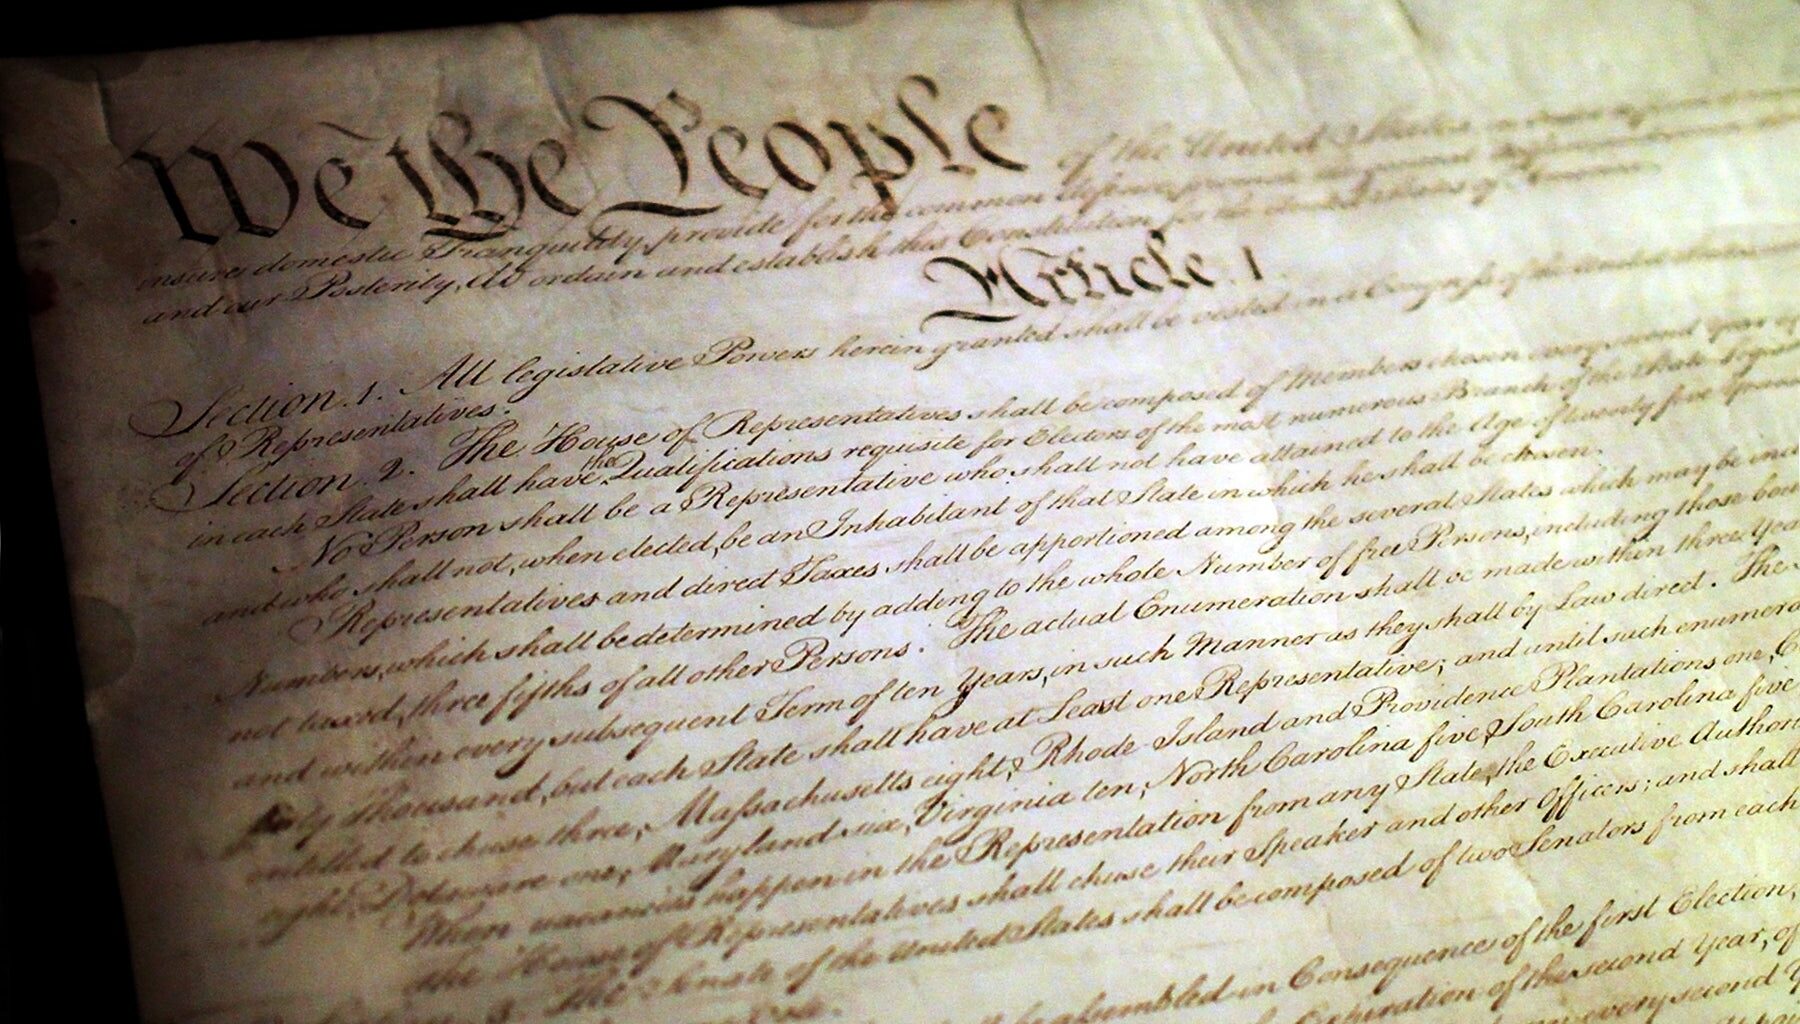 We the People of the United States
insure domestic Tranquility, provide for the common defence, promote the general
and our Posterity, do ordain and establish this Constitution for the United States of America.
Article. I.
Section. 1. All legislative Powers herein granted shall be vested in a Congress of the United States
of Representatives.
Section. 2. The House of Representatives shall be composed of Members chosen every second Year
in each State shall have the Qualifications requisite for Electors of the most numerous Branch of the State
No Person shall be a Representative who shall not have attained to the Age of twenty five Years
and who shall not, when elected, be an Inhabitant of that State in which he shall be chosen.
Representatives and direct Taxes shall be apportioned among the several States which may be
Numbers, which shall be determined by adding to the whole Number of free Persons, including those
not taxed, three fifths of all other Persons. The actual Enumeration shall be made within three
and within every subsequent Term of ten Years, in such Manner as they shall by Law direct. The
thirty Thousand, but each State shall have at Least one Representative; and until such
entitled to chuse three, Massachusetts eight, Rhode-Island and Providence Plantations one,
eight, Delaware one, Maryland six, Virginia ten, North Carolina five, South Carolina five
When vacancies happen in the Representation from any State, the Executive
the House of Representatives shall chuse their Speaker and other Officers; and shall
3. The Senate of the United States shall be composed of two Senators from each
assembled in Consequence of the first Election,
Expiration of the second Year, of
every second